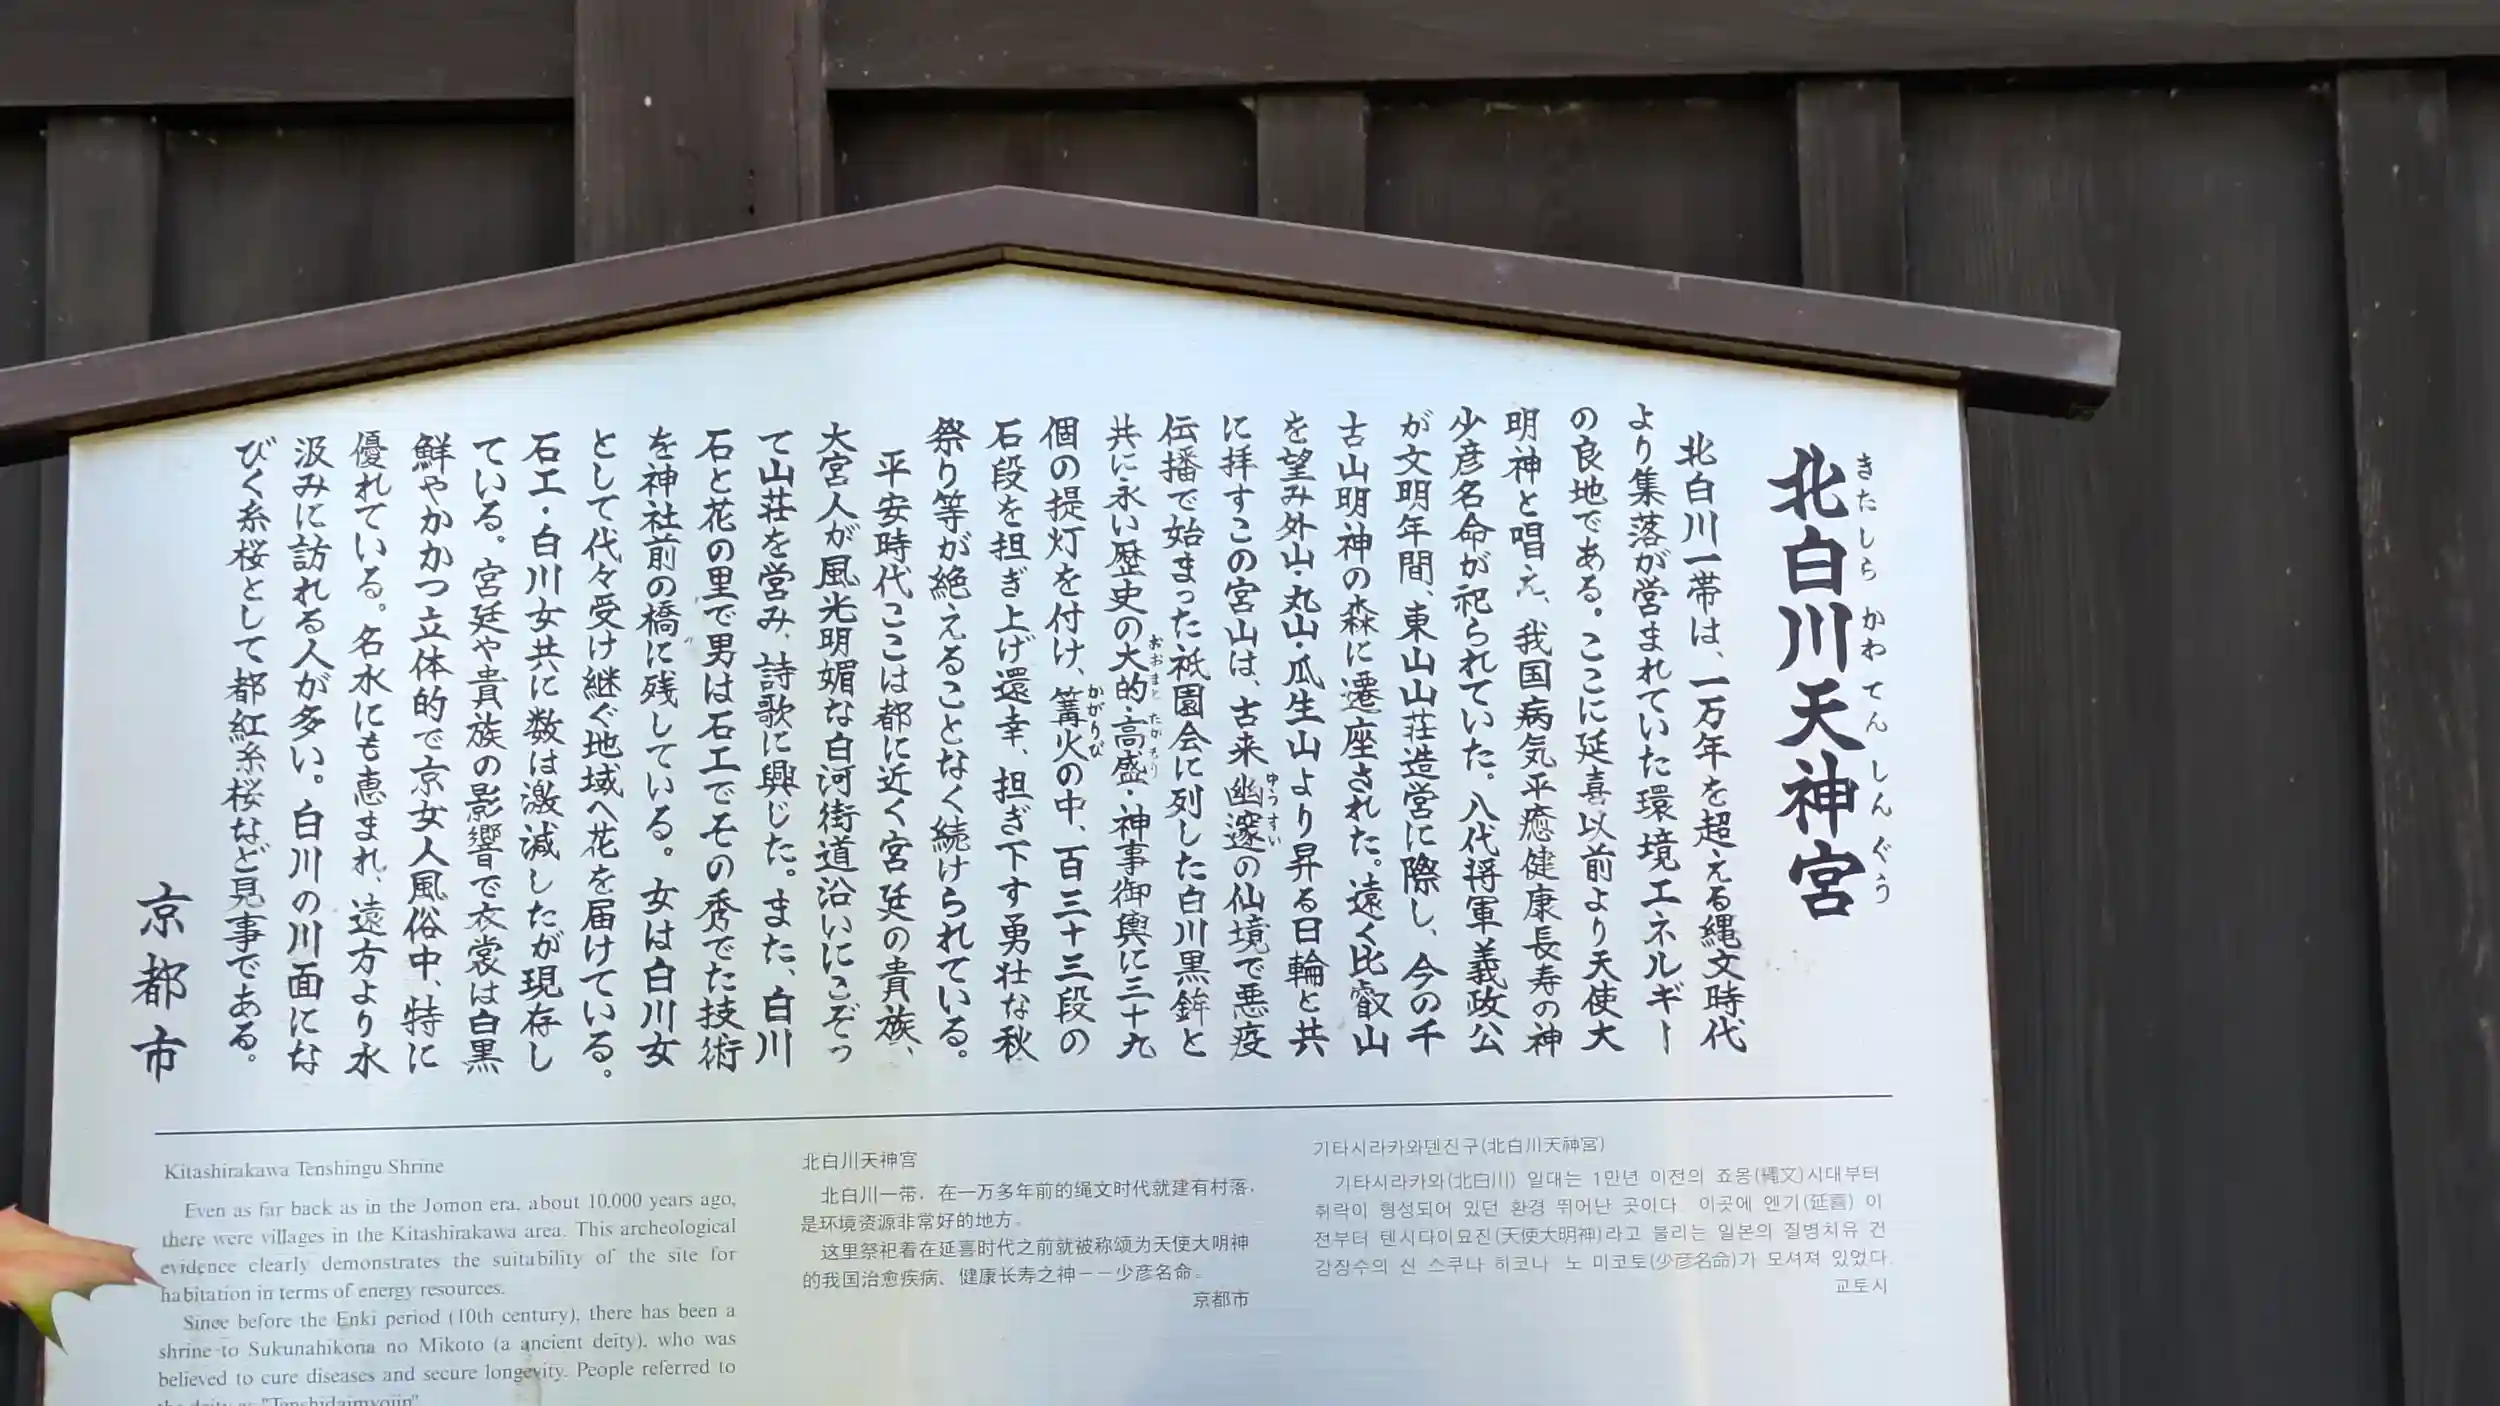 北白川天神宮
きたしらかわてんしんぐう
北白川一帯は、一万年を超える縄文時代
より集落が営まれていた環境エネルギー
の良地である。ここに延喜以前より天使大
明神と唱え、我国病気平癒健康長寿の神
少彦名命が祀られていた。八代将軍義政公
が文明年間、東山山荘造営に際し、今の千
古山明神の森に遷座された。遠く比叡山
を望み外山・丸山・瓜生山より昇る日輪と共
に拝すこの宮山は、古来幽邃の仙境で悪疫
ゆうすい
伝播で始まった祇園会に列した白川黒鉾と
共に永い歴史の大的・高盛・神事御輿に三十九
おおまと たかもり
個の提灯を付け、篝火の中、百三十三段の
かがりび
石段を担ぎ上げ還幸、担ぎ下す勇壮な秋
祭り等が絶えることなく続けられている。
平安時代ここは都に近く宮廷の貴族、
大宮人が風光明媚な白河街道沿いにこぞっ
て山荘を営み、詩歌に興じた。また、白川
石と花の里で男は石工でその秀でた技術
を神社前の橋に残している。女は白川女
として代々受け継ぐ地域へ花を届けている。
石工・白川女共に数は激減したが現存し
ている。宮廷や貴族の影響で衣裳は白黒
鮮やかかつ立体的で京女人風俗中、特に
優れている。名水にも恵まれ、遠方より水
汲みに訪れる人が多い。白川の川面にな
びく糸桜として都紅糸桜など見事である。
京都市
Kitashirakawa Tenshingu Shrine
Even as far back as in the Jomon era, about 10,000 years ago,
there were villages in the Kitashirakawa area. This archeological
evidence clearly demonstrates the suitability of the site for
habitation in terms of energy resources.
Since before the Enki period (10th century), there has been a
shrine to Sukunahikona no Mikoto (a ancient deity), who was
believed to cure diseases and secure longevity. People referred to
the deity as "Tenshidaimyojin"
北白川天神宫
北白川一带，在一万多年前的绳文时代就建有村落，
是环境资源非常好的地方。
这里祭祀着在延喜时代之前就被称颂为天使大明神
的我国治愈疾病、健康长寿之神－－少彦名命。
京都市
기타시라카와덴진구(北白川天神宮)
기타시라카와(北白川) 일대는 1만년 이전의 죠몽(縄文)시대부터
취락이 형성되어 있던 환경 뛰어난 곳이다. 이곳에 엔기(延喜) 이
전부터 텐시다이묘진(天使大明神)라고 불리는 일본의 질병치유 건
강장수의 신 스쿠나 히코나 노 미코토(少彦名命)가 모셔져 있었다.
교토시